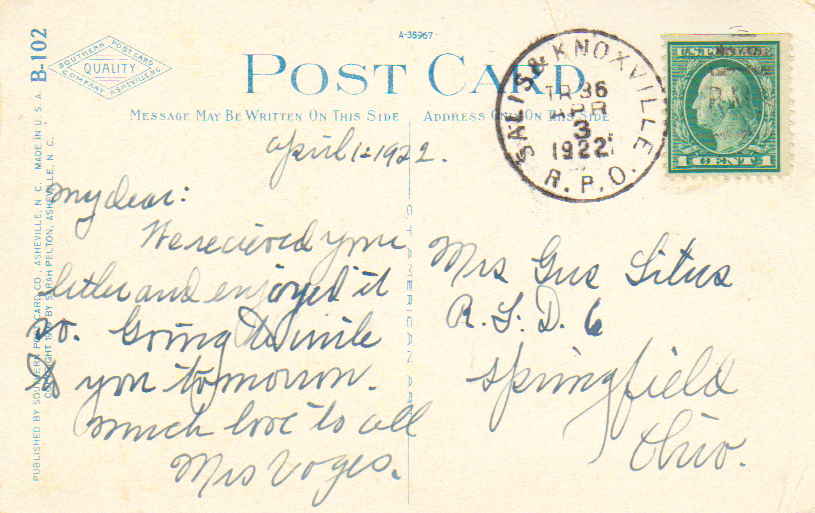 A-35967
SOUTHERN POST CARD
QUALITY
COMPANY ASHEVILLE N.C.
B-102
POST CARD
MESSAGE MAY BE WRITTEN ON THIS SIDE
ADDRESS ONLY ON THIS SIDE
SALIS & KNOXVILLE
TR 36
APR
3
1922
R.P.O.
U.S. POSTAGE
1 CENT 1
April 1 1922.
My dear:
We recieved your
letter and enjoyed it
so. Going to write
to you tomorrow.
much love to all
Mrs Voges.
Mrs Gus Situs
R.F.D. 6
Springfield
Ohio.
PUBLISHED BY SOUTHERN POST CARD CO., ASHEVILLE, N. C. MADE IN U. S. A.
BY SARAH PELTON, ASHEVILLE, N. C.
AMERICAN ART